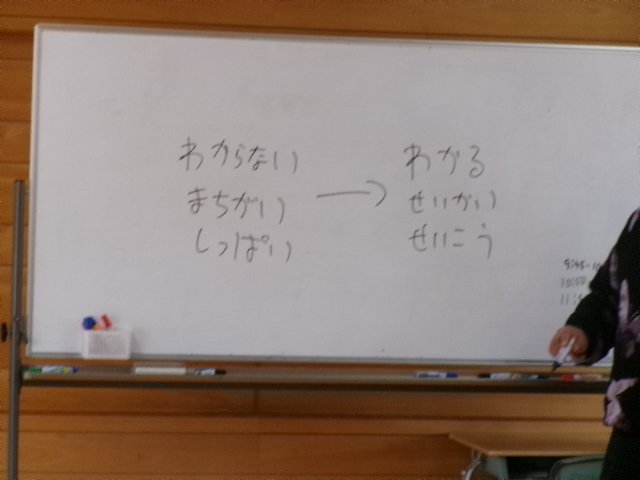 わからない
まちがい
しっぱい
→
わかる
せいかい
せいこう
9:45-10
10:50